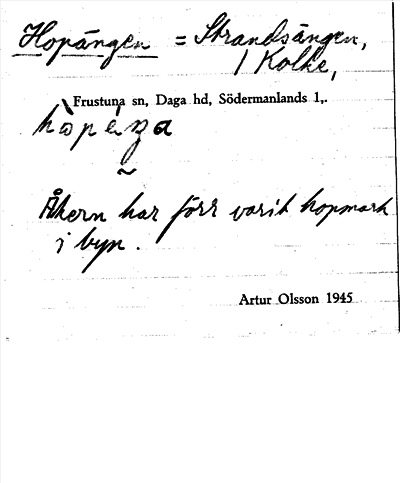 Hopängen = Strandsängen,
i Kolke,
Frustuna sn, Daga hd, Södermanlands l,.
Åkern har förr varit hopmark
i byn.
Artur Olsson 1945